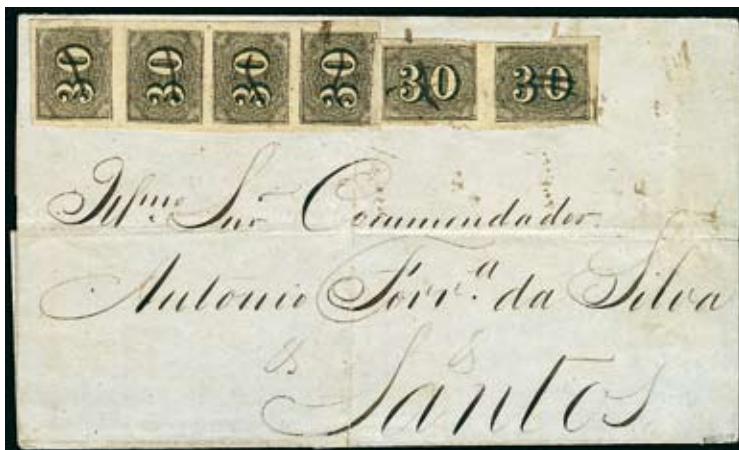 30 30 30 30 30 30
Illmo. Snr. Commendador.
Antonio Ferra. da Silva
Santos